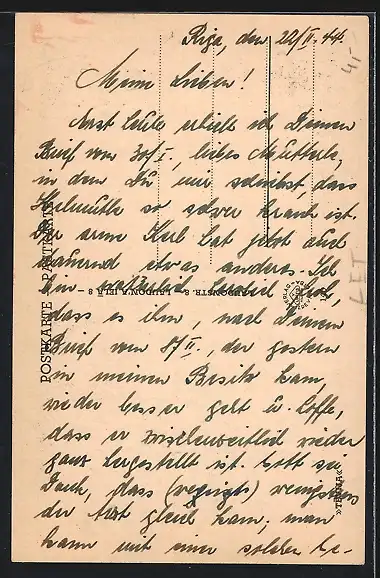 Riga, den 22/II. 44.
4,-
Meine Lieben!
Erst heute erhielt ich Deinen
Brief vom 30/I., liebes Mutterle,
in dem Du mir schreibst, dass
Helmuth so schwer krank ist.
Der arme Kerl hat jetzt auch
dauernd etwas anderes. Ich
bin froh,
dass es ihm, nach Deinem
Brief vom 8/II., der gestern
in meinen Besitz kam,
wieder besser geht u. hoffe,
dass er zwischenzeitlich wieder
ganz hergestellt ist. Gott sei
Dank, dass wenigstens
der Arzt gleich kam; man
kann mit einer solchen
POSTKARTE - PASTKARTE
LET